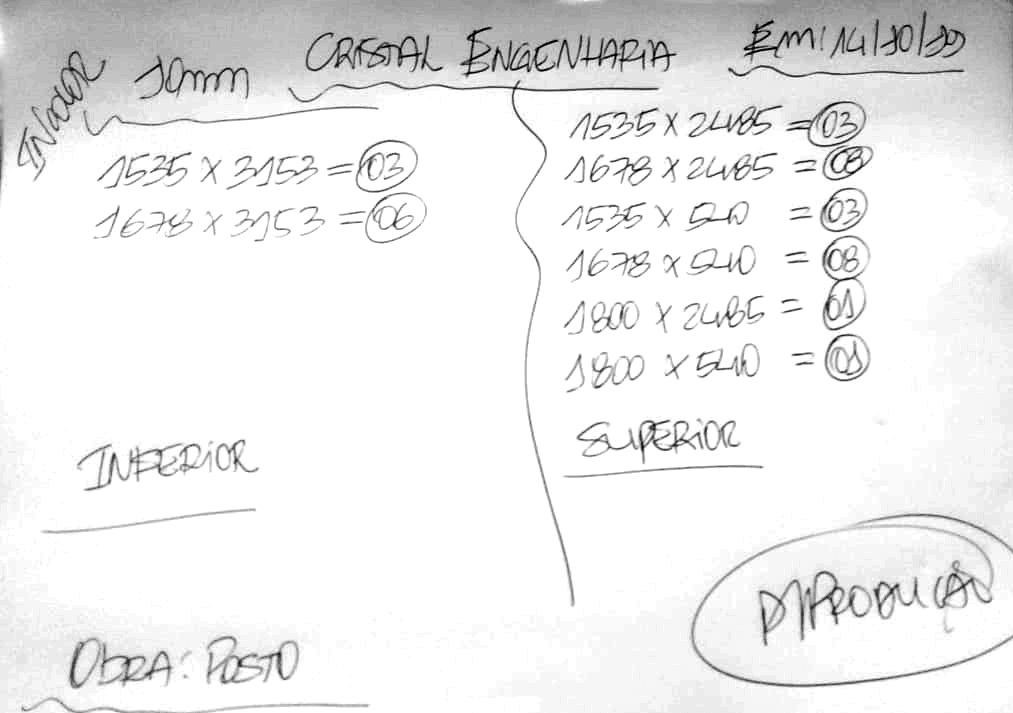 INCOLOR 10mm CRISTAL ENGENHARIA Em: 14/10/19
1535 x 3153 = 03
1678 x 3153 = 06
INFERIOR
1535 x 2485 = 03
1678 x 2485 = 08
1535 x 540 = 03
1678 x 540 = 08
1800 x 2485 = 01
1800 x 540 = 01
SUPERIOR
P/PRODUÇÃO
OBRA: POSTO